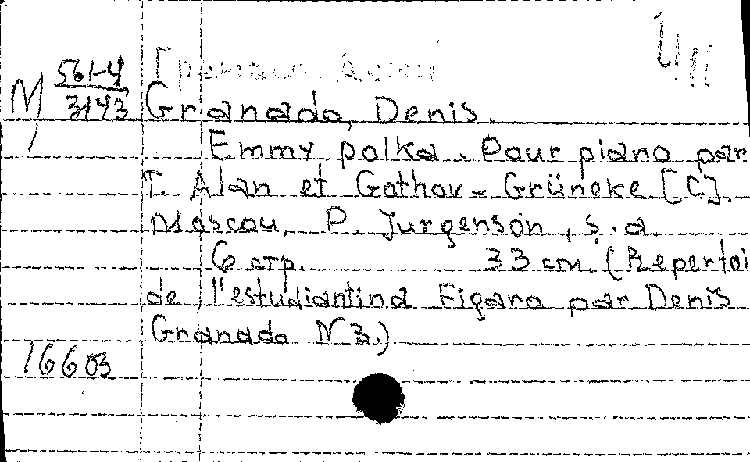 561-4
M 3143
Granado, Denis.
Emmy polka. Pour piano par
T. Alan et Gothov-Grüneke [C].
Moscou, P. Jurgenson, s.a.
6 стр. 33 см. (Repertoi
de l'estudiantina Figaro par Denis
Granado N 3.)
16603